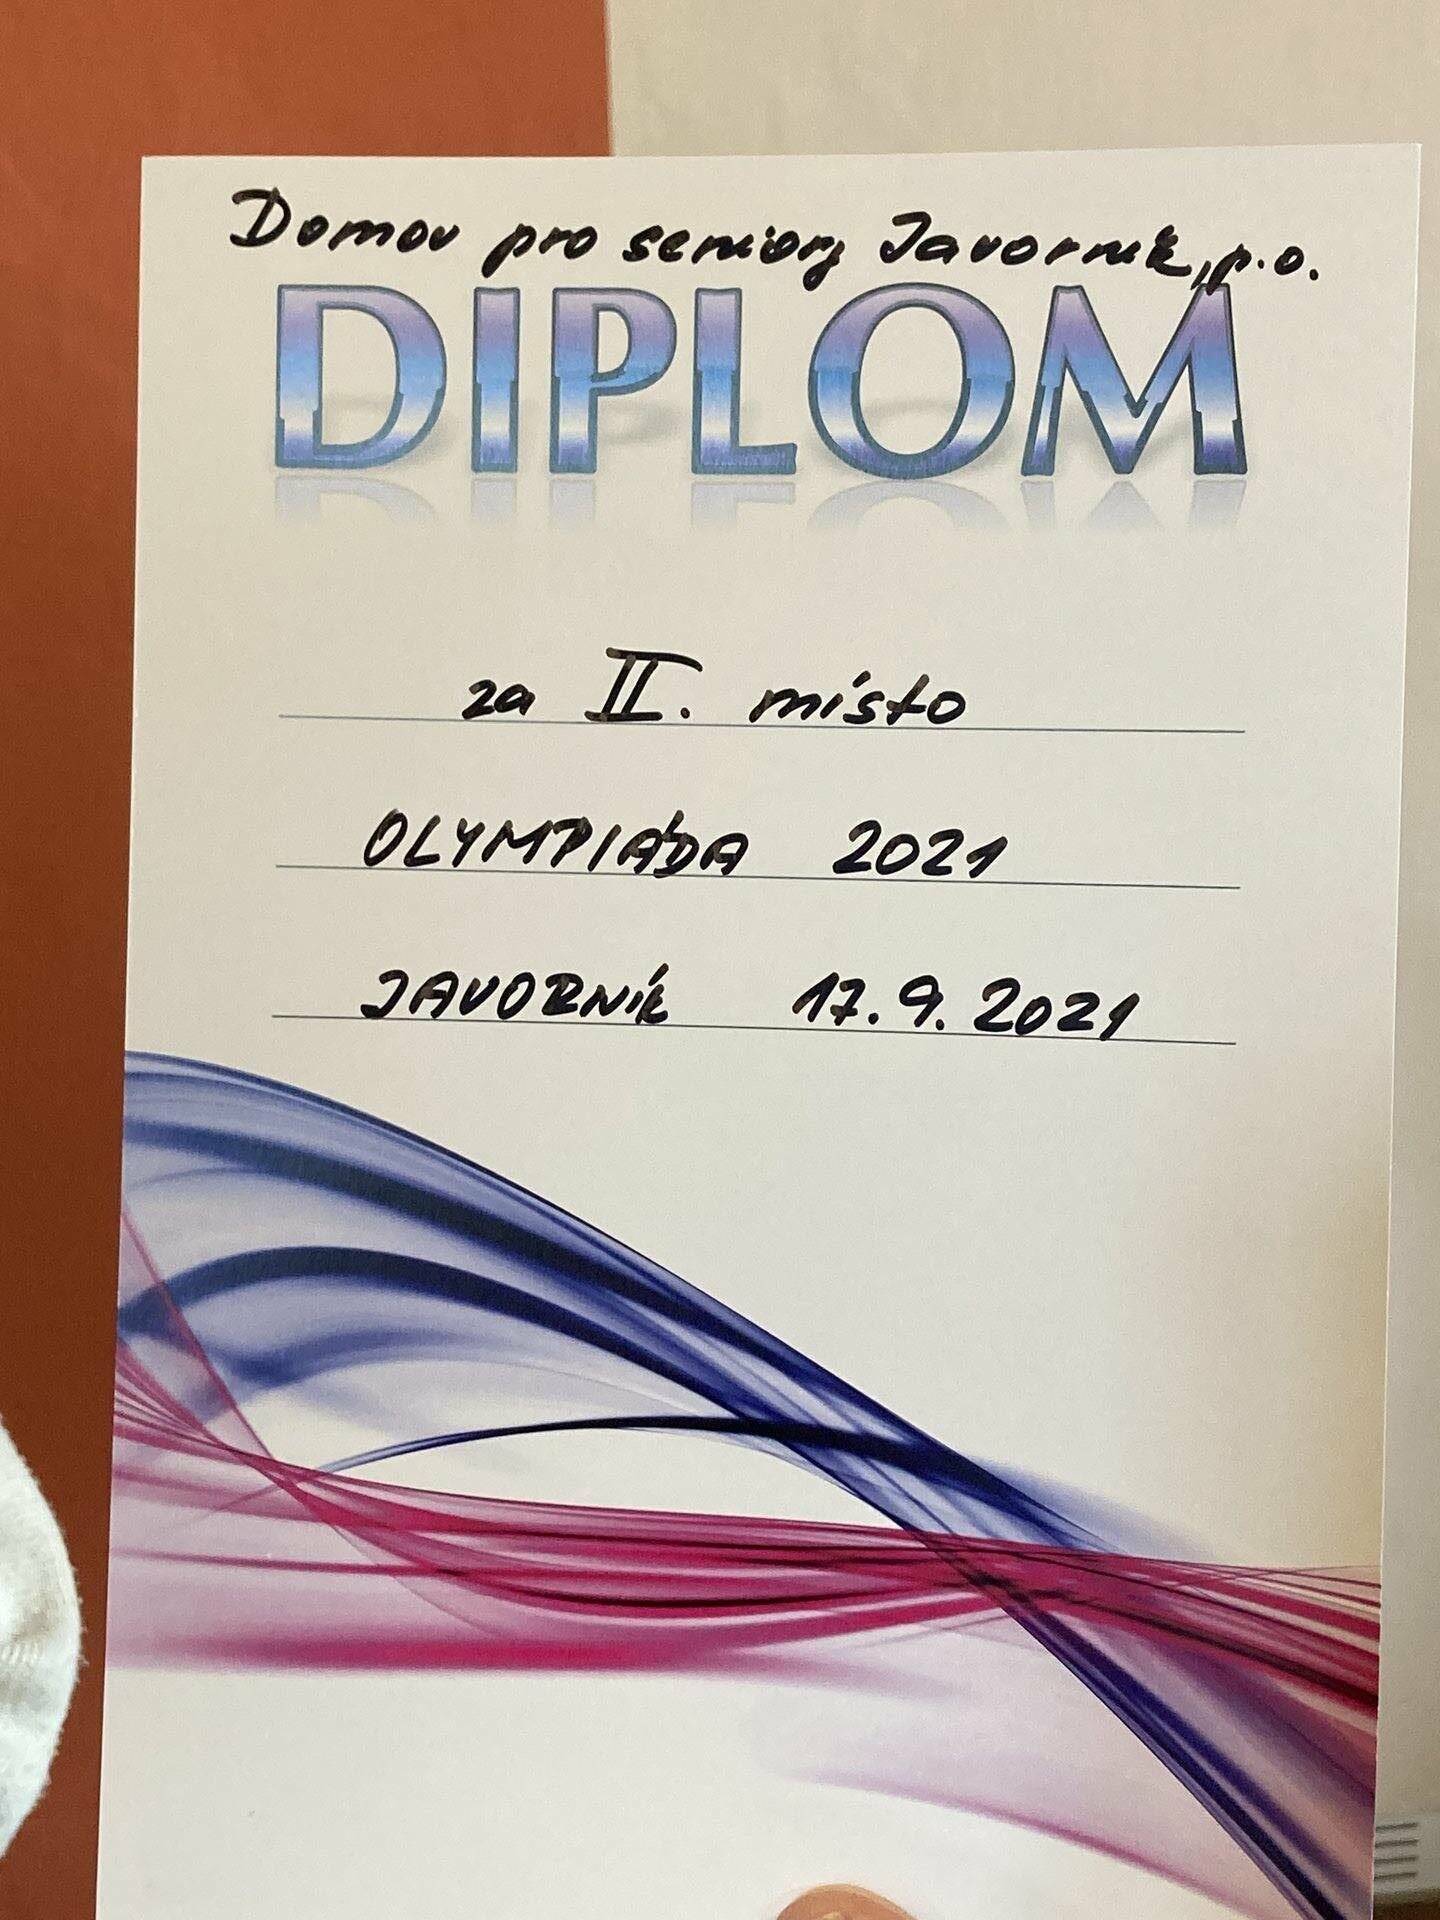 Domov pro seniory Javorník, p.o.
DIPLOM
za II. místo
OLYMPIÁDA 2021
JAVORNÍK 17.9.2021